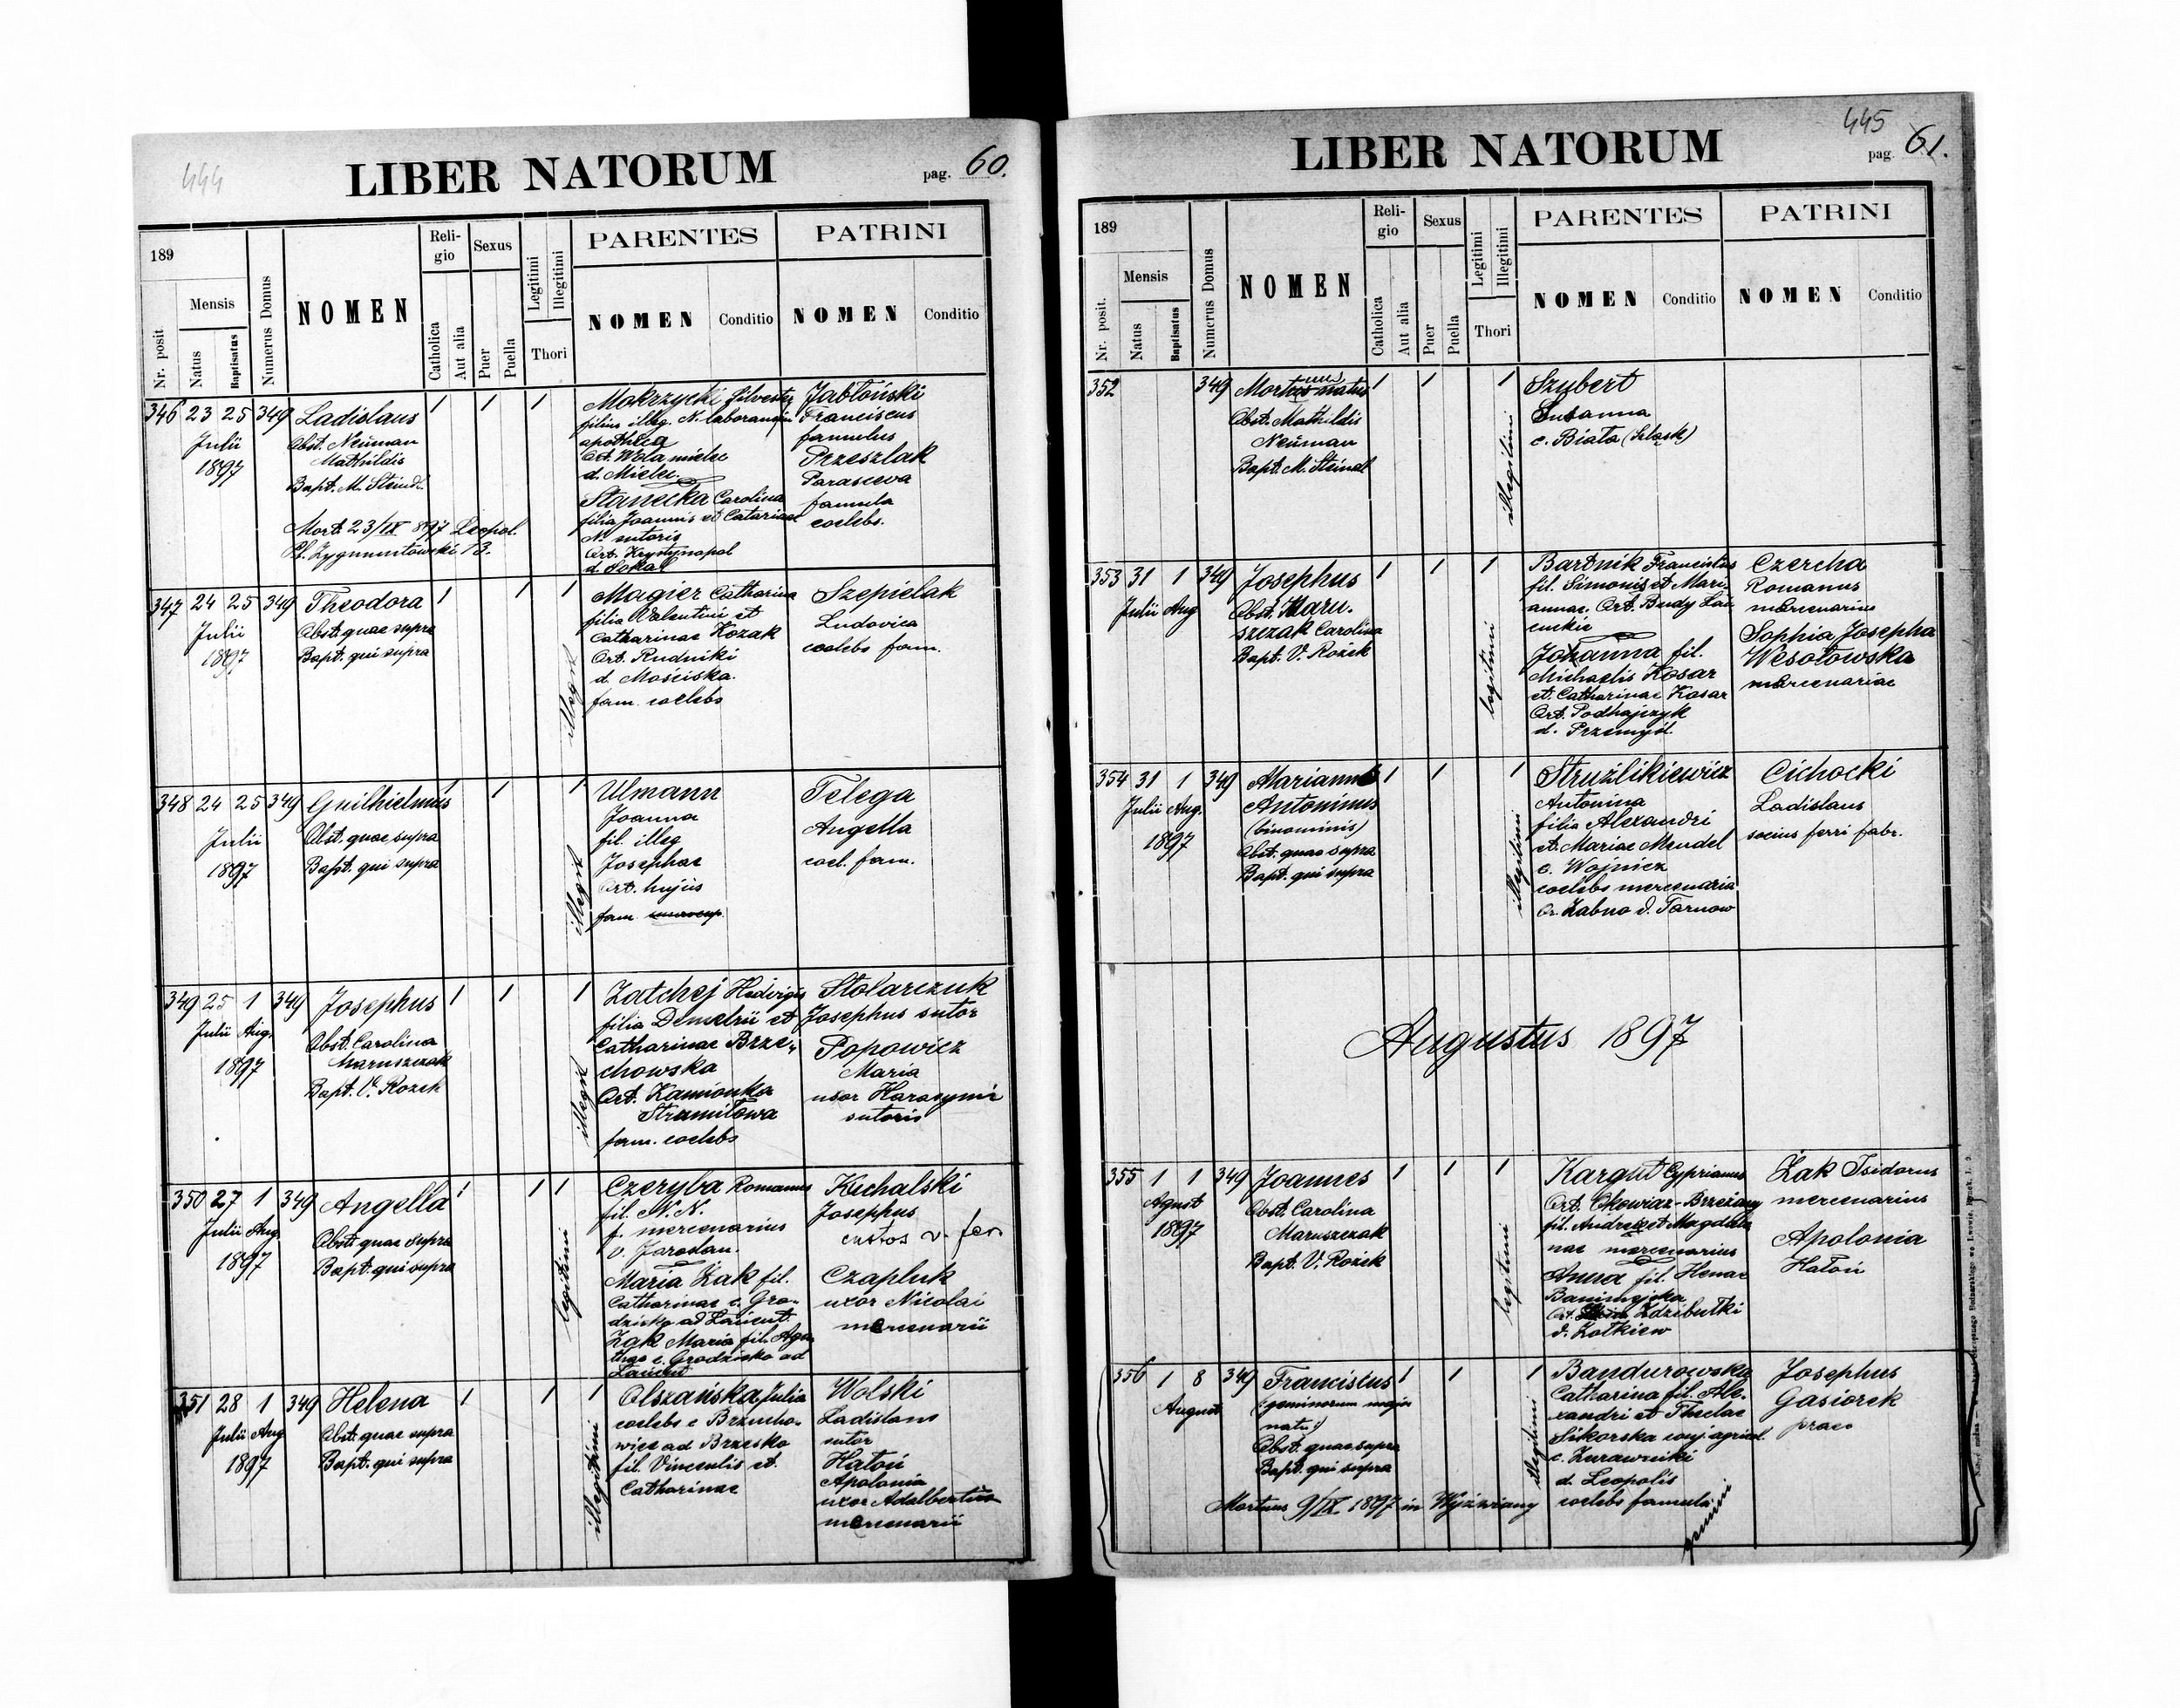 444
LIBER NATORUM
pag. 60.
189
Nr. posit
Mensis
Natus
Baptisatus
Numerus Domus
NOMEN
Reli-
gio
Catholica
Aut alia
Sexus
Puer
Puella
Legitimi
Illegitimi
Thori
PARENTES
NOMEN
Conditio
PATRINI
NOMEN
Conditio
346 23 25 349
Julii
1897
Ladislaus
Obst. Neuman
Mathildis
Bapt. M. Steindl
Mort. 23/IX 897 Leopol.
Pl. Zygmuntowski 13.
1 1 1
Mokrzycki Silvester
filius illeg. N. laborantin
apotheca
Ort. Wola mielec
d. Mielec
Stanecka Carolina
filia Joannis et Catarinae
N. sutoris
Ort. Krystynopol
d. Sokal
Jabłoński
Franciscus
famulus
Przeszlak
Parasceva
famula
coelebs.
347 24 25 349
Julii
1897
Theodora
Obst. quae supra
Bapt. qui supra
1 1 1
illegit
Magier Catharina
filia Valentini et
Catharinae Kozak
Ort. Rudniki
d. Mościska.
fam. coelebs
Szepielak
Ludovica
coelebs fam.
348 24 25 349
Julii
1897
Guilhielmus
Obst. quae supra
Bapt. qui supra
1 1 1
illegit
Ulmann
Joanna
fil. illeg
Josephae
Ort. hujus
fam.
Telega
Angella
coel. fam.
349 25 1 349
Julii Aug.
1897
Josephus
Obst. Carolina
Maruszczak
Bapt. V. Rożek
1 1 1
illegit
Zatchej Hedvigis
filia Demetrii et
Catharinae Brze-
chowska
Ort. Kamionka
Strumiłowa
fam. coelebs
Stolarczuk
Josephus sutor
Popowicz
Maria
uxor Harasymi
sutoris
350 27 1 349
Julii Aug
1897
Angella
Obst. quae supra
Bapt. qui supra
1 1 1
legitimi
Czeryba Romanus
fil. N. N.
f. mercenarius
v. Jarosłau.
Maria Żak fil.
Catharinae e. Gro-
dzisko ad Łańcut.
Żak Maria fil. Aga
thae e. Grodzisko ad
Łańcut
Kuchalski
Josephus
custos v. fer
Czapluk
uxor Nicolai
mercenarii
351 28 1 349
Julii Aug
1897
Helena
Obst. quae supra
Bapt. qui supra
1 1 1
illegitimi
Olszańska Julia
coelebs e Brzucho-
wice ad Brzesko
fil. Vincentis et
Catharinae
Wolski
Ladislaus
sutor
Hatoń
Apolonia
uxor Adalberti
mercenarii
445
LIBER NATORUM
pag. 61.
189
Nr. posit.
Mensis
Natus
Baptisatus
Numerus Domus
NOMEN
Reli-
gio
Catholica
Aut alia
Sexus
Puer
Puella
Legitimi
Illegitimi
Thori
PARENTES
NOMEN
Conditio
PATRINI
NOMEN
Conditio
352 349
Obst. Mathildis
Neuman
Bapt. M. Steindl
1 1 1
illegitimi
Szubert
Susanna
e. Biała (Szląsk)
353 31 1 349
Julii Aug
Josephus
Obst. Maru-
szczak Carolina
Bapt. V. Rożek
1 1 1
legitimi
Bartnik Franciscus
fil. Simonis et Mari
annae. Ort. Budy Łań
cuckie
Johanna fil.
Michaelis Kosar
et. Catharinae Kosar
Ort. Podhajczyk
d. Przemyśl.
Czercha
Romanus
mercenarius
Sophia Josepha
Wesołowska
mercenariae
354 31 1 349
Julii Aug.
1897
Antoninus
(binominis)
Obst. quae supra
Bapt. qui supra
1 1 1
illegitimi
Strużlikiewicz
Antonina
filia Alexandri
et Mariae Mendel
e. Wojnicz
coelebs mercenaria
Or. Żabno d. Tarnow
Cichocki
Ladislaus
socius ferri fabr.
Augustus 1897
355 1 1 349
Agust
1897
Joannes
Obst. Carolina
Maruszczak
Bapt. V. Rożek
1 1 1
legitimi
Kargut Cyprianus
Ort. Ckowiaz-Brzeżany
fil. Andreae et Magdale
nae mercenarius
Anna fil. Henae
Ort. Zdzibułki
d. Żółkiew
Żak Isidorus
mercenarius
Apolonia
Hatoń
356 1 8 349
August
Franciscus
(geminorum major
natu)
Obst. quae supra
Bapt. qui supra
Mortuus 9/IX 1897 in Wyżniany
1 1 1
illegitimi
Bandurowska
Catharina fil. Ale-
xandri et Theclae
Sikorska conj. agricol.
e. Żurawniki
d. Leopolis
coelebs famula
gemini
Josephus
Gąsiorek
praec